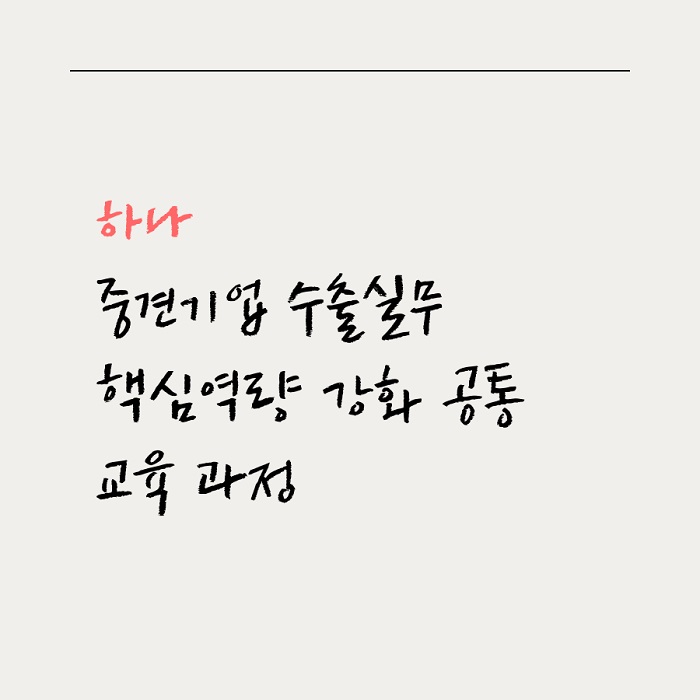 하나
중견기업 수출실무
핵심역량 강화 공통
교육 과정